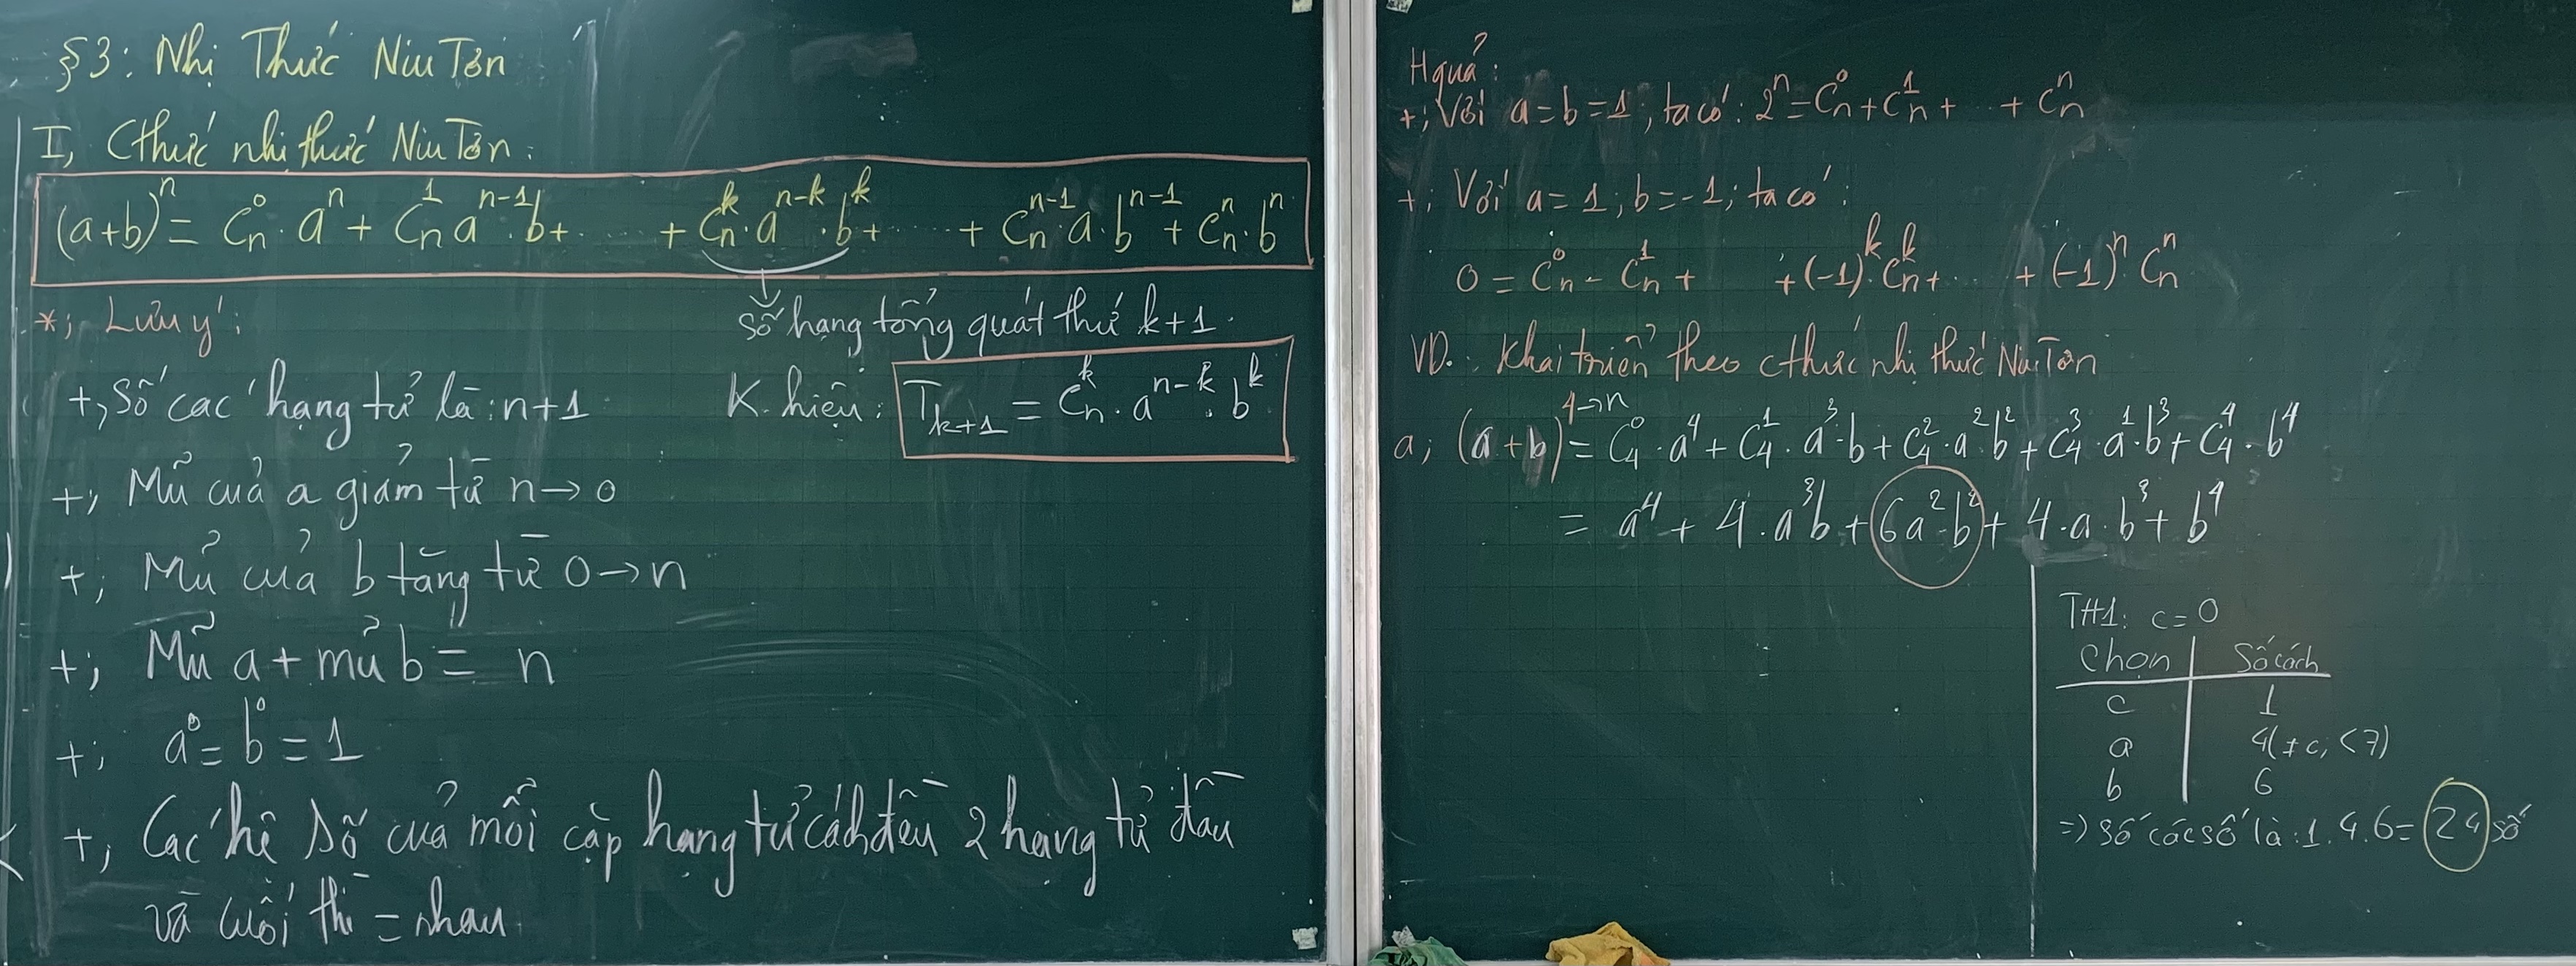 §3: Nhị Thức Niu Tơn
I, Cthức nhị thức Niu Tơn:
(a+b)ⁿ = Cₙ⁰·aⁿ + Cₙ¹ aⁿ⁻¹·b + ..... + Cₙᵏ·aⁿ⁻ᵏ·bᵏ + ..... + Cₙⁿ⁻¹·a·bⁿ⁻¹ + Cₙⁿ·bⁿ
số hạng tổng quát thứ k+1.
*; Lưu ý:
+, Số các hạng tử là: n+1
K.hiệu: Tₖ₊₁ = Cₙᵏ·aⁿ⁻ᵏ·bᵏ
+; Mũ của a giảm từ n→0
+; Mũ của b tăng từ 0→n
+; Mũ a + mũ b = n
+; a⁰ = b⁰ = 1
+; Các hệ số của mỗi cặp hạng tử cách đều 2 hạng tử đầu
và cuối thì = nhau
Hquả:
+; Với a=b=1; ta có: 2ⁿ = Cₙ⁰ + Cₙ¹ + ... + Cₙⁿ
+; Với a=1; b=-1; ta có:
0 = Cₙ⁰ - Cₙ¹ + +(-1)ᵏ·Cₙᵏ + ... + (-1)ⁿ Cₙⁿ
VD: Khai triển theo cthức nhị thức NiuTơn
4→n
a; (a+b)⁴ = C₄⁰·a⁴ + C₄¹·a³·b + C₄²·a²·b² + C₄³·a¹·b³ + C₄⁴·b⁴
= a⁴ + 4·a³b + 6a²·b² + 4·a·b³ + b⁴
TH1: c=0
Chọn | Số cách
c | 1
a | 4(≠c; <7)
b | 6
=> Số các số là: 1.4.6= 24 số